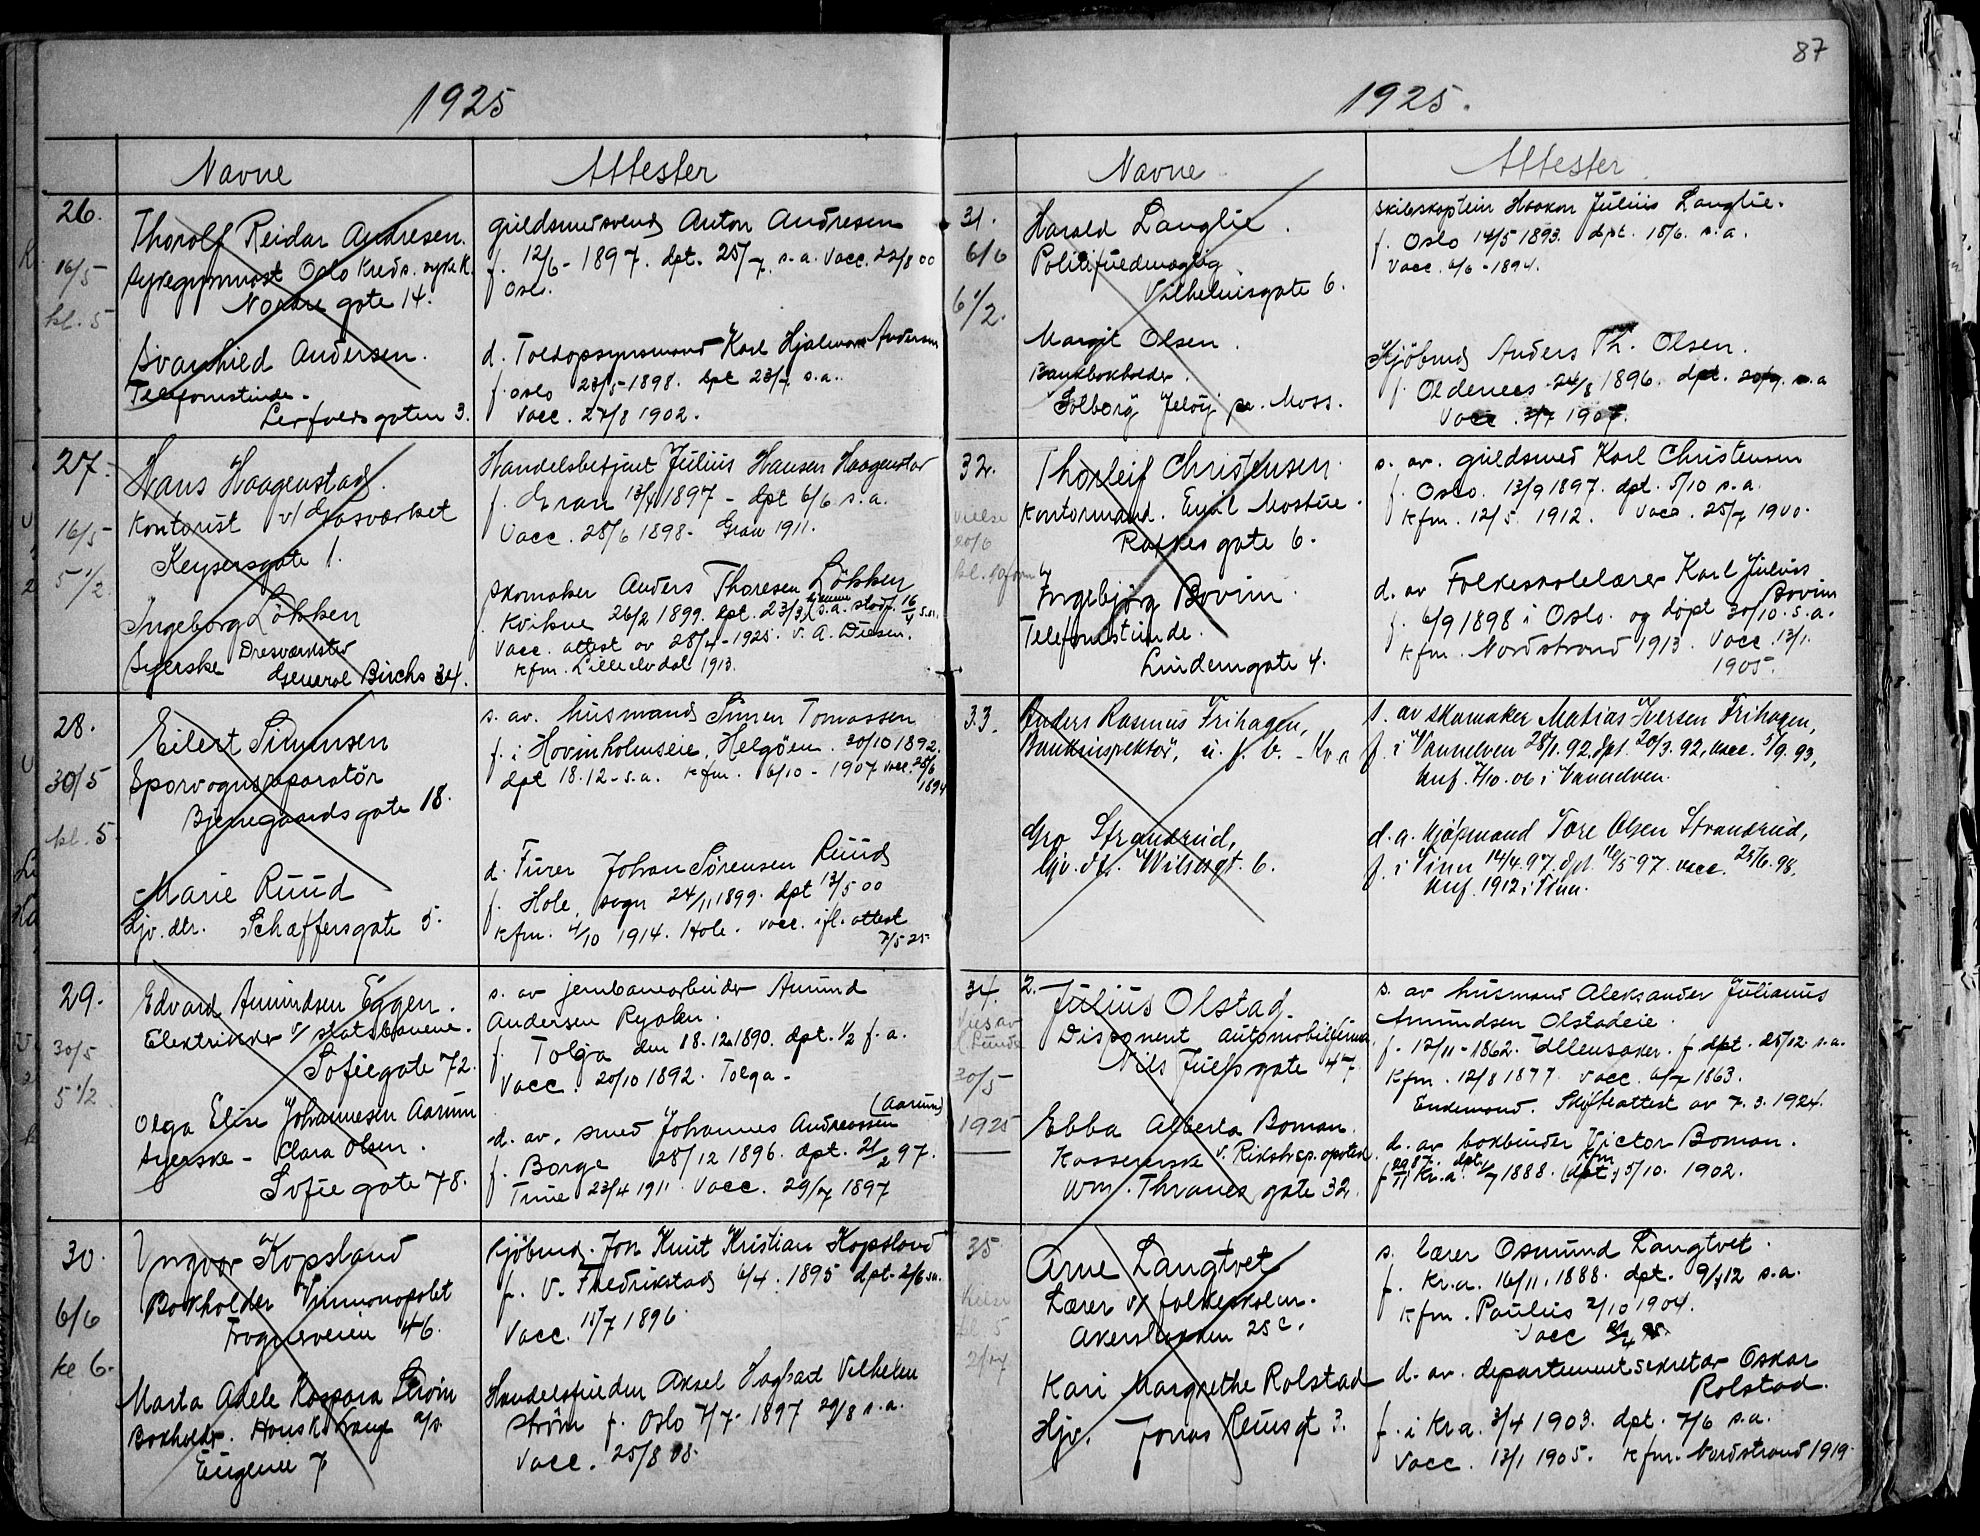 1925
Navne Attester
26.
16/5
kl. 5
Thorolf Reidar Andresen.
sykegymnast Oslo Kreds. syke k.
Nordre gate 14.
guldsmedsvend Anton Andresen
f. 12/6 - 1897. dpt. 25/7 s.a. Vacc. 22/8 00
Oslo.
Svanhild Andersen.
Telefonistinde -
3.
d. Toldopsynsmand Karl Hjalmar Andersen
f. Oslo 23/5 - 1898. dpt 23/7 s.a.
Vacc. 27/8 1902.
27.
16/5
5 1/2
Hans Haagenstad.
Kontorist v/ Gasværket
Keysersgate 1.
Handelsbetjent Julius Hansen Haagenstad
f. Gran 1897 - dpt 6/6 s.a.
Vacc. 28/6 1898 - Gran 1911.
Ingeborg Løkken
Syerske
General Birchs 34.
skomaker Anders Thoresen Løkken
f. Kvikne 26/2 1899. dpt. 23/3 s.a. 16/4 s.a.
Vacc. attest av 28/4 - 1925.
kfm. Lilleelvdal 1913.
28.
30/5
kl. 5
Eilert Simensen
Sporvognsreparatør
Bjerregaardsgate 18.
s. av. husmand Simen Tomassen
f. i Hovinholmseie, Helgøen. 30/10 1892.
dpt 18.12 - s.a. kfm. 6/10 - 1907 vacc. 25/6
1894
Marie Ruud
Hjv. dtr. Schaffersgate 5.
d. Furer Johan Sørensen Ruud
f. Hole sogn 24/11 1899. dpt 13/5 00
kfm. 4/10 1914. Hole. vacc. ifl. attest
7/5 25
29.
30/5
5 1/2
Edvard Amundsen Eggen.
Elektriker v/ statsbanene.
Sofiegate 72.
s. av jernbanearbeider Amund
Andersen
f. Tolga den 18.12 1890. dpt. 1/2 f.a.
Vacc. 20/10 1892. Tolga -
Olga Elise Johannesen Aarum
Syerske - Klara Olsen.
Sofie gate 78.
(Aarum)
d. av. smed Johannes Andreassen
f. Borge 28/12 1896. dpt. 21/2 97.
Tune 23/4 1911. Vacc. 29/7 1897
30.
6/6
kl 6.
Yngvar Kopsland
Bokholder Vinmonopolet
Frognerveien 46.
kjøbmd. Jon Knut Kristian Kopsland
f. V. Fredrikstad 6/4. 1895 dpt. 2/6 s.a.
Vacc. 15/7 1896
Marta Adele Kaspara Strøm
Bokholder. a/s.
Eugenie 7
Aksel Hagbart Vilhelm
Strøm f. Oslo 7/7 - 1897 29/8 s.a.
Vacc. 25/8 08.
87
1925.
Navne Attester.
31.
6/6
6 1/2.
Harald Langlie.
Politifuldmægtig
Vilhelmsgate 6.
skibskaptein Haakon Julius Langlie.
f. Oslo 14/5 1893. dpt. 18/6. s.a.
Vacc. 6/6 - 1894.
Margit Olsen.
Bankbokholder.
Solborg Jeløy pr. Moss.
Kjøbmd Anders Th. Olsen.
f. 24/8 1896. dpt. s.a
Vacc. 3/7 1907.
32.
vielse
20/6
Thorleif Christensen.
Kontormand. Emil Mostue.
6.
s. av. guldsmed Karl Christensen
f. Oslo. 13/9 1897. dpt. 5/10 s.a.
kfm. 12/5 1912. Vacc. 25/7 1900.
Ingebjørg Bovim.
Telefonistinde.
Lindemgate 4.
d. av Folkeskolelærer Karl Julius
Bovim
f. 6/9 1898 i Oslo. og døpt 30/10. s.a.
kfm. Nordstrand 1913. Vacc. 13/1.
1905.
33.
Anders Rasmus Frihagen,
Bankinspektør, u. f. b. - Kr.a
s. av skomaker Matias Iversen Frihagen,
f. i Vannelven 28/1. 92. dpt. 20/3. 92, vacc. 5/9. 93,
knf. 7/10. 06 i Vannelven.
Gro Strandrud,
Hjv. dt. Wilsesgt. 6.
d. a. kjøpmand Tore Olsen Strandrud,
f. i Tinn 14/4. 97. dpt. 16/5 97. vacc. 25/6. 98,
knf. 1912 i Tinn.
34.
Vies av
30/5
1925
2.
Julius Olstad.
Disponent automobilfirma.
Nils Juelsgate 47
s. av husmand Aleksander Julianus
Amundsen Olstadeie.
f. 12/11 - 1862. Ullensaker. dpt. 25/12 s.a.
kfm. 12/8 1877. vacc. 6/7 1863.
Enkemand. Skifteattest av 7. 3. 1924.
Ebba Alberta Boman.
Kassererske v. Riksh
Wm. Thranes gate 32.
d. av bokbinder Victor Boman.
Kr.a. dpt. 1888. kfm 5/10. 1902.
35.
vielse
kl. 5
Arne Langtvet
Lærer v/ folkeskolen.
Akersbakken 25 c.
s. lærer Osmund Langtvet.
f. Kr.a. 16/11. 1888. dpt. 9/12 s.a.
kfm. Paulus 2/10 1904.
Vacc
Kari Margrethe Rolstad
Hjv. Jonas Reinsgt 3.
d. av. departementsekretær Oskar
Rolstad.
f. i Kr.a. 3/4 1903. dpt. 7/6 s.a.
Vacc. 13/1 1905. kfm. Nordstrand 1919.